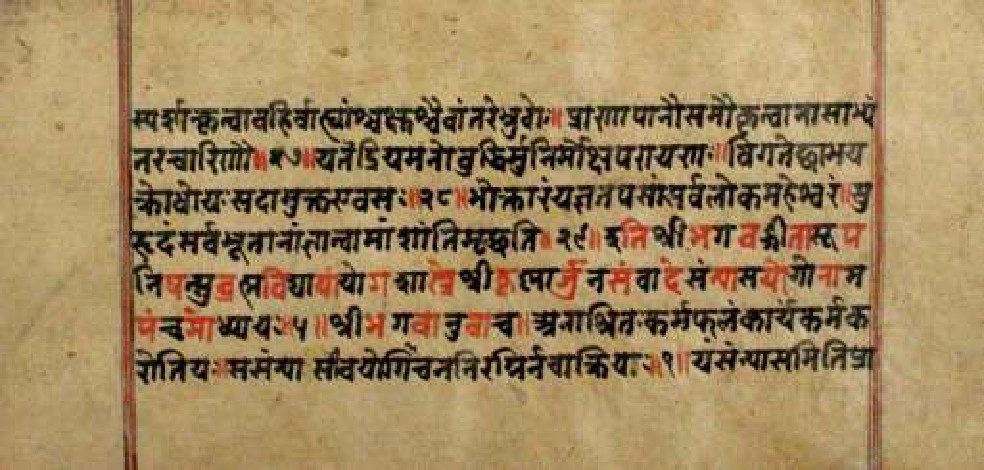 स्पर्शान्कृत्वाबहिर्बाह्यांश्चक्षुश्चैवांतरेभ्रुवोः॥ प्राणापानौसमौकृत्वानासाभ्यं
तरचारिणौ॥२७॥यतेंद्रियमनोबुद्धिर्मुनिर्मोक्षपरायणः॥विगतेच्छाभय
क्रोधोयःसदामुक्तएवसः॥२८॥भोक्तारंयज्ञतपसांसर्वलोकमहेश्वरं॥सु
हृदंसर्वभूतानांज्ञात्वामांशांतिमृच्छति॥२९॥इतिश्रीभगवद्गीतासूप
निषत्सुब्रह्मविद्यायांयोगशास्त्रेश्रीकृष्णार्जुनसंवादेसंन्यासयोगोनाम
पंचमोध्यायः॥५॥श्रीभगवानुवाच॥अनाश्रितःकर्मफलंकार्यंकर्मक
रोतियः॥ससंन्यासीचयोगीचननिरग्निर्नचाक्रियः॥१॥यंसंन्यासमितिप्रा